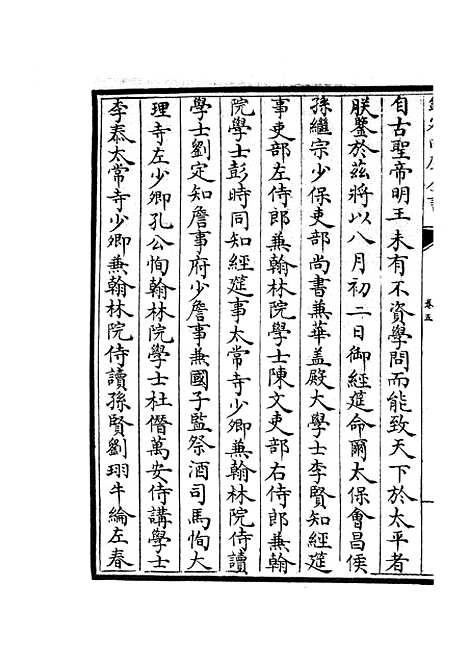 自古聖帝明王未有不資學問而能致天下於太平者
朕鑒於兹將以八月初二日御經筵命爾太保會昌侯
孫繼宗少保吏部尚書兼華盖殿大學士李賢知經筵
事吏部左侍郎兼翰林院學士陳文吏部右侍郎兼翰
院學士彭時同知經筵事太常寺少卿兼翰林院侍讀
學士劉定知詹事府少詹事兼國子監祭酒司馬恂大
理寺左少卿孔公恂翰林院學士杜僭萬安侍講學士
李泰太常寺少卿兼翰林院侍讀孫賢劉珝牛綸左春
卷五